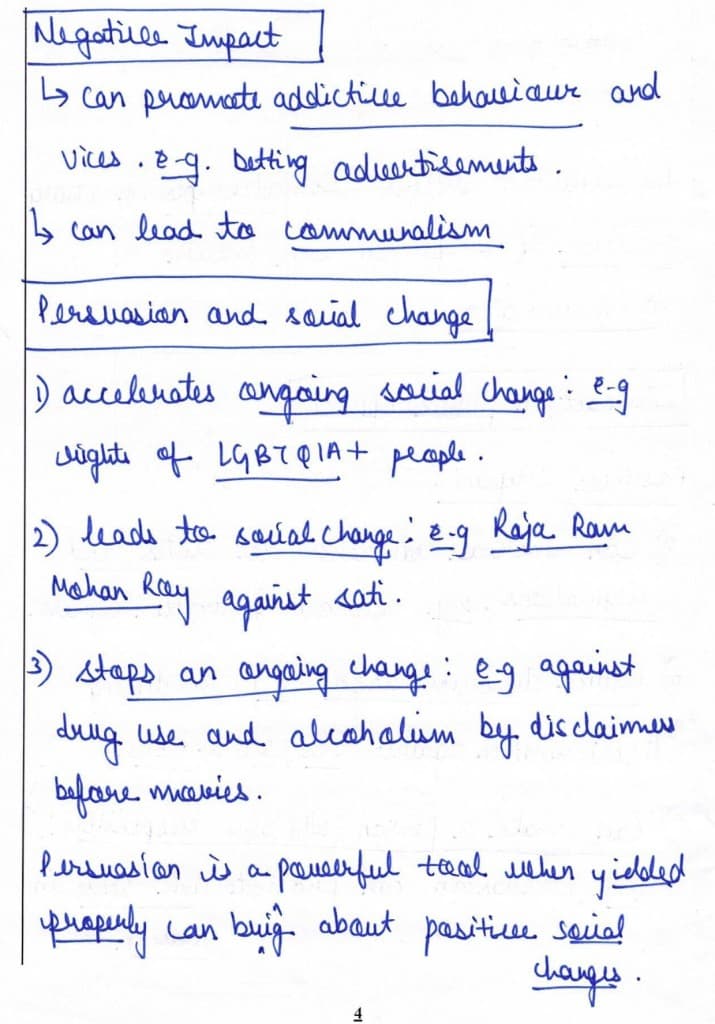 Negative Impact
↳ can promote addictive behaviour and
vices. e-g. betting advertisements.
↳ can lead to communalism
Persuasion and social change
1) accelerates ongoing social change: e-g
rights of LGBTQIA+ people.
2) leads to social change: e-g Raja Ram
Mohan Roy against sati.
3) stops an ongoing change: e-g against
drug use and alcoholism by disclaimers
before movies.
Persuasion is a powerful tool when yielded
properly can bring about positive social
changes.
4